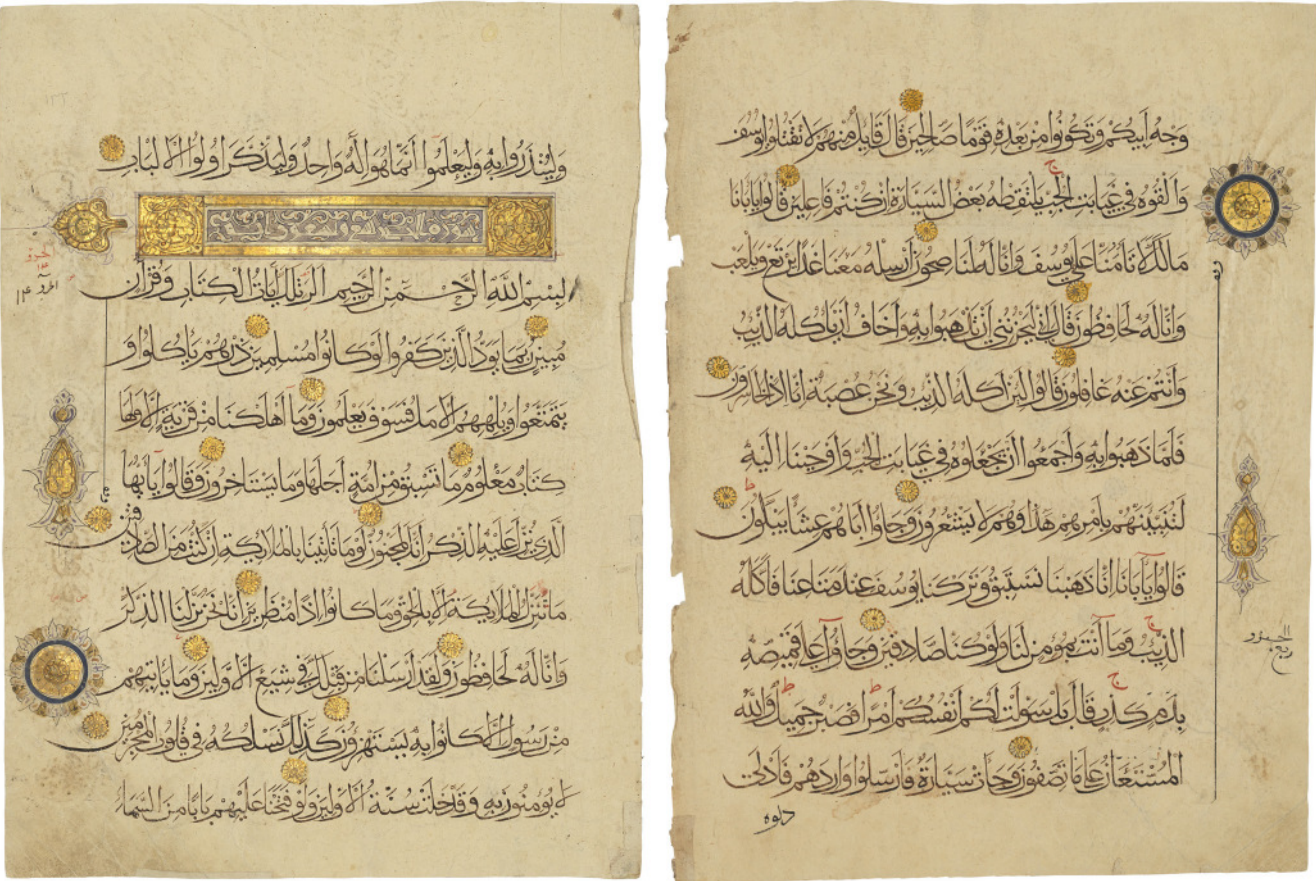 وَجْهُ أَبِيكُمْ وَتَكُونُوا مِنْ بَعْدِهِ قَوْمًا صَالِحِينَ قَالَ قَايِلٌ مِنْهُمْ لَا تَقْتُلُوا يُوسُفَ
وَأَلْقُوهُ فِي غَيَابَتِ الْجُبِّ يَلْتَقِطْهُ بَعْضُ السَّيَّارَةِ إِنْ كُنْتُمْ فَاعِلِينَ قَالُوا يَابَانَا
مَالَكَ لَا تَأْمَنَّا عَلَى يُوسُفَ وَإِنَّا لَهُ لَنَاصِحُونَ أَرْسِلْهُ مَعَنَا غَدًا يَرْتَعْ وَيَلْعَبْ
وَإِنَّا لَهُ لَحَافِظُونَ قَالَ إِنِّي لَيَحْزُنُنِي أَنْ تَذْهَبُوا بِهِ وَأَخَافُ أَنْ يَأْكُلَهُ الذِّيبُ
وَأَنْتُمْ عَنْهُ غَافِلُونَ قَالُوا لَيِنْ أَكَلَهُ الذِّيبُ وَنَحْنُ عُصْبَةٌ إِنَّا إِذًا لَخَاسِرُونَ
فَلَمَّا ذَهَبُوا بِهِ وَأَجْمَعُوا أَنْ يَجْعَلُوهُ فِي غَيَابَتِ الْجُبِّ وَأَوْحَيْنَا إِلَيْهِ
لَتُنَبِّيَنَّهُمْ بِأَمْرِهِمْ هَذَا وَهُمْ لَا يَشْعُرُونَ وَجَاوُا أَبَاهُمْ عِشَاءً يَبْكُونَ
قَالُوا يَآبَانَا إِنَّا ذَهَبْنَا نَسْتَبِقُ وَتَرَكْنَا يُوسُفَ عِنْدَ مَتَاعِنَا فَأَكَلَهُ
الذِّيبُ وَمَا أَنْتَ بِمُومِنٍ لَنَا وَلَوْ كُنَّا صَادِقِينَ وَجَاوُا عَلَى قَمِيصِهِ
بِدَمٍ كَذِبٍ قَالَ بَلْ سَوَّلَتْ لَكُمْ أَنْفُسُكُمْ أَمْرًا فَصَبْرٌ جَمِيلٌ وَاللَّهُ
الْمُسْتَعَانُ عَلَى مَا تَصِفُونَ وَجَاءَتْ سَيَّارَةٌ فَأَرْسَلُوا وَارِدَهُمْ فَأَدْلَى
دلوه
ربع
وَلِيُنْذَرُوا بِهِ وَلِيَعْلَمُوا أَنَّمَا هُوَ إِلَهٌ وَاحِدٌ وَلِيَذَّكَّرَ أُولُوا الْأَلْبَابِ
بِسْمِ اللَّهِ الرَّحْمَنِ الرَّحِيمِ الر تِلْكَ آيَاتُ الْكِتَابِ وَقُرْآنٍ
مُبِينٍ رُبَمَا يَوَدُّ الَّذِينَ كَفَرُوا لَوْ كَانُوا مُسْلِمِينَ ذَرْهُمْ يَأْكُلُوا وَ
يَتَمَتَّعُوا وَيُلْهِهِمُ الْأَمَلُ فَسَوْفَ يَعْلَمُونَ وَمَا أَهْلَكْنَا مِنْ قَرْيَةٍ إِلَّا وَلَهَا
كِتَابٌ مَعْلُومٌ مَا تَسْبِقُ مِنْ أُمَّةٍ أَجَلَهَا وَمَا يَسْتَاخِرُونَ وَقَالُوا يَا أَيُّهَا
الَّذِي نُزِّلَ عَلَيْهِ الذِّكْرُ إِنَّكَ لَمَجْنُونٌ لَوْ مَا تَأْتِينَا بِالْمَلَايِكَةِ إِنْ كُنْتَ مِنَ الصَّادِقِينَ
مَا نُنَزِّلُ الْمَلَايِكَةَ إِلَّا بِالْحَقِّ وَمَا كَانُوا إِذًا مُنْظَرِينَ إِنَّا نَحْنُ نَزَّلْنَا الذِّكْرَ
وَإِنَّا لَهُ لَحَافِظُونَ وَلَقَدْ أَرْسَلْنَا مِنْ قَبْلِكَ فِي شِيَعِ الْأَوَّلِينَ وَمَا يَأْتِيهِمْ
مِنْ رَسُولٍ إِلَّا كَانُوا بِهِ يَسْتَهْزِوُنَ كَذَلِكَ نَسْلُكُهُ فِي قُلُوبِ الْمُجْرِمِينَ
لَا يُومِنُونَ بِهِ وَقَدْ خَلَتْ سُنَّةُ الْأَوَّلِينَ وَلَوْ فَتَحْنَا عَلَيْهِمْ بَابًا مِنَ السَّمَاءِ